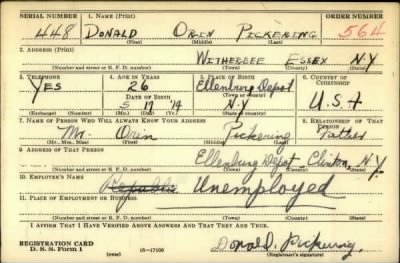 SERIAL NUMBER 1. NAME (Print) ORDER NUMBER
448 DONALD ORIN PICKERING 564
(First) (Middle) (Last)
2. ADDRESS (Print)
WITHERBEE ESSEX N.Y
(Number and street or R. F. D. number) (Town) (County) (State)
3. TELEPHONE 4. AGE IN YEARS 5. PLACE OF BIRTH 6. COUNTRY OF CITIZENSHIP
YES 26 Ellenburg Depot
DATE OF BIRTH (Town or county)
5 17 '14 N.Y U.S.A
(Exchange) (Number) (Mo.) (Day) (Yr.) (State or country)
7. NAME OF PERSON WHO WILL ALWAYS KNOW YOUR ADDRESS 8. RELATIONSHIP OF THAT PERSON
Mr. Orin Pickering Father
(Mr., Mrs., Miss) (First) (Middle) (Last)
9. ADDRESS OF THAT PERSON
Ellenburg Depot Clinton, N.Y.
(Number and street or R. F. D. number) (Town) (County) (State)
10. EMPLOYER'S NAME
Republic Unemployed
11. PLACE OF EMPLOYMENT OR BUSINESS
(Number and street or R. F. D. number) (Town) (County) (State)
I AFFIRM THAT I HAVE VERIFIED ABOVE ANSWERS AND THAT THEY ARE TRUE.
REGISTRATION CARD
D. S. S. Form 1 (over) 16—17105 Donald. Pickering,
(Registrant's signature)